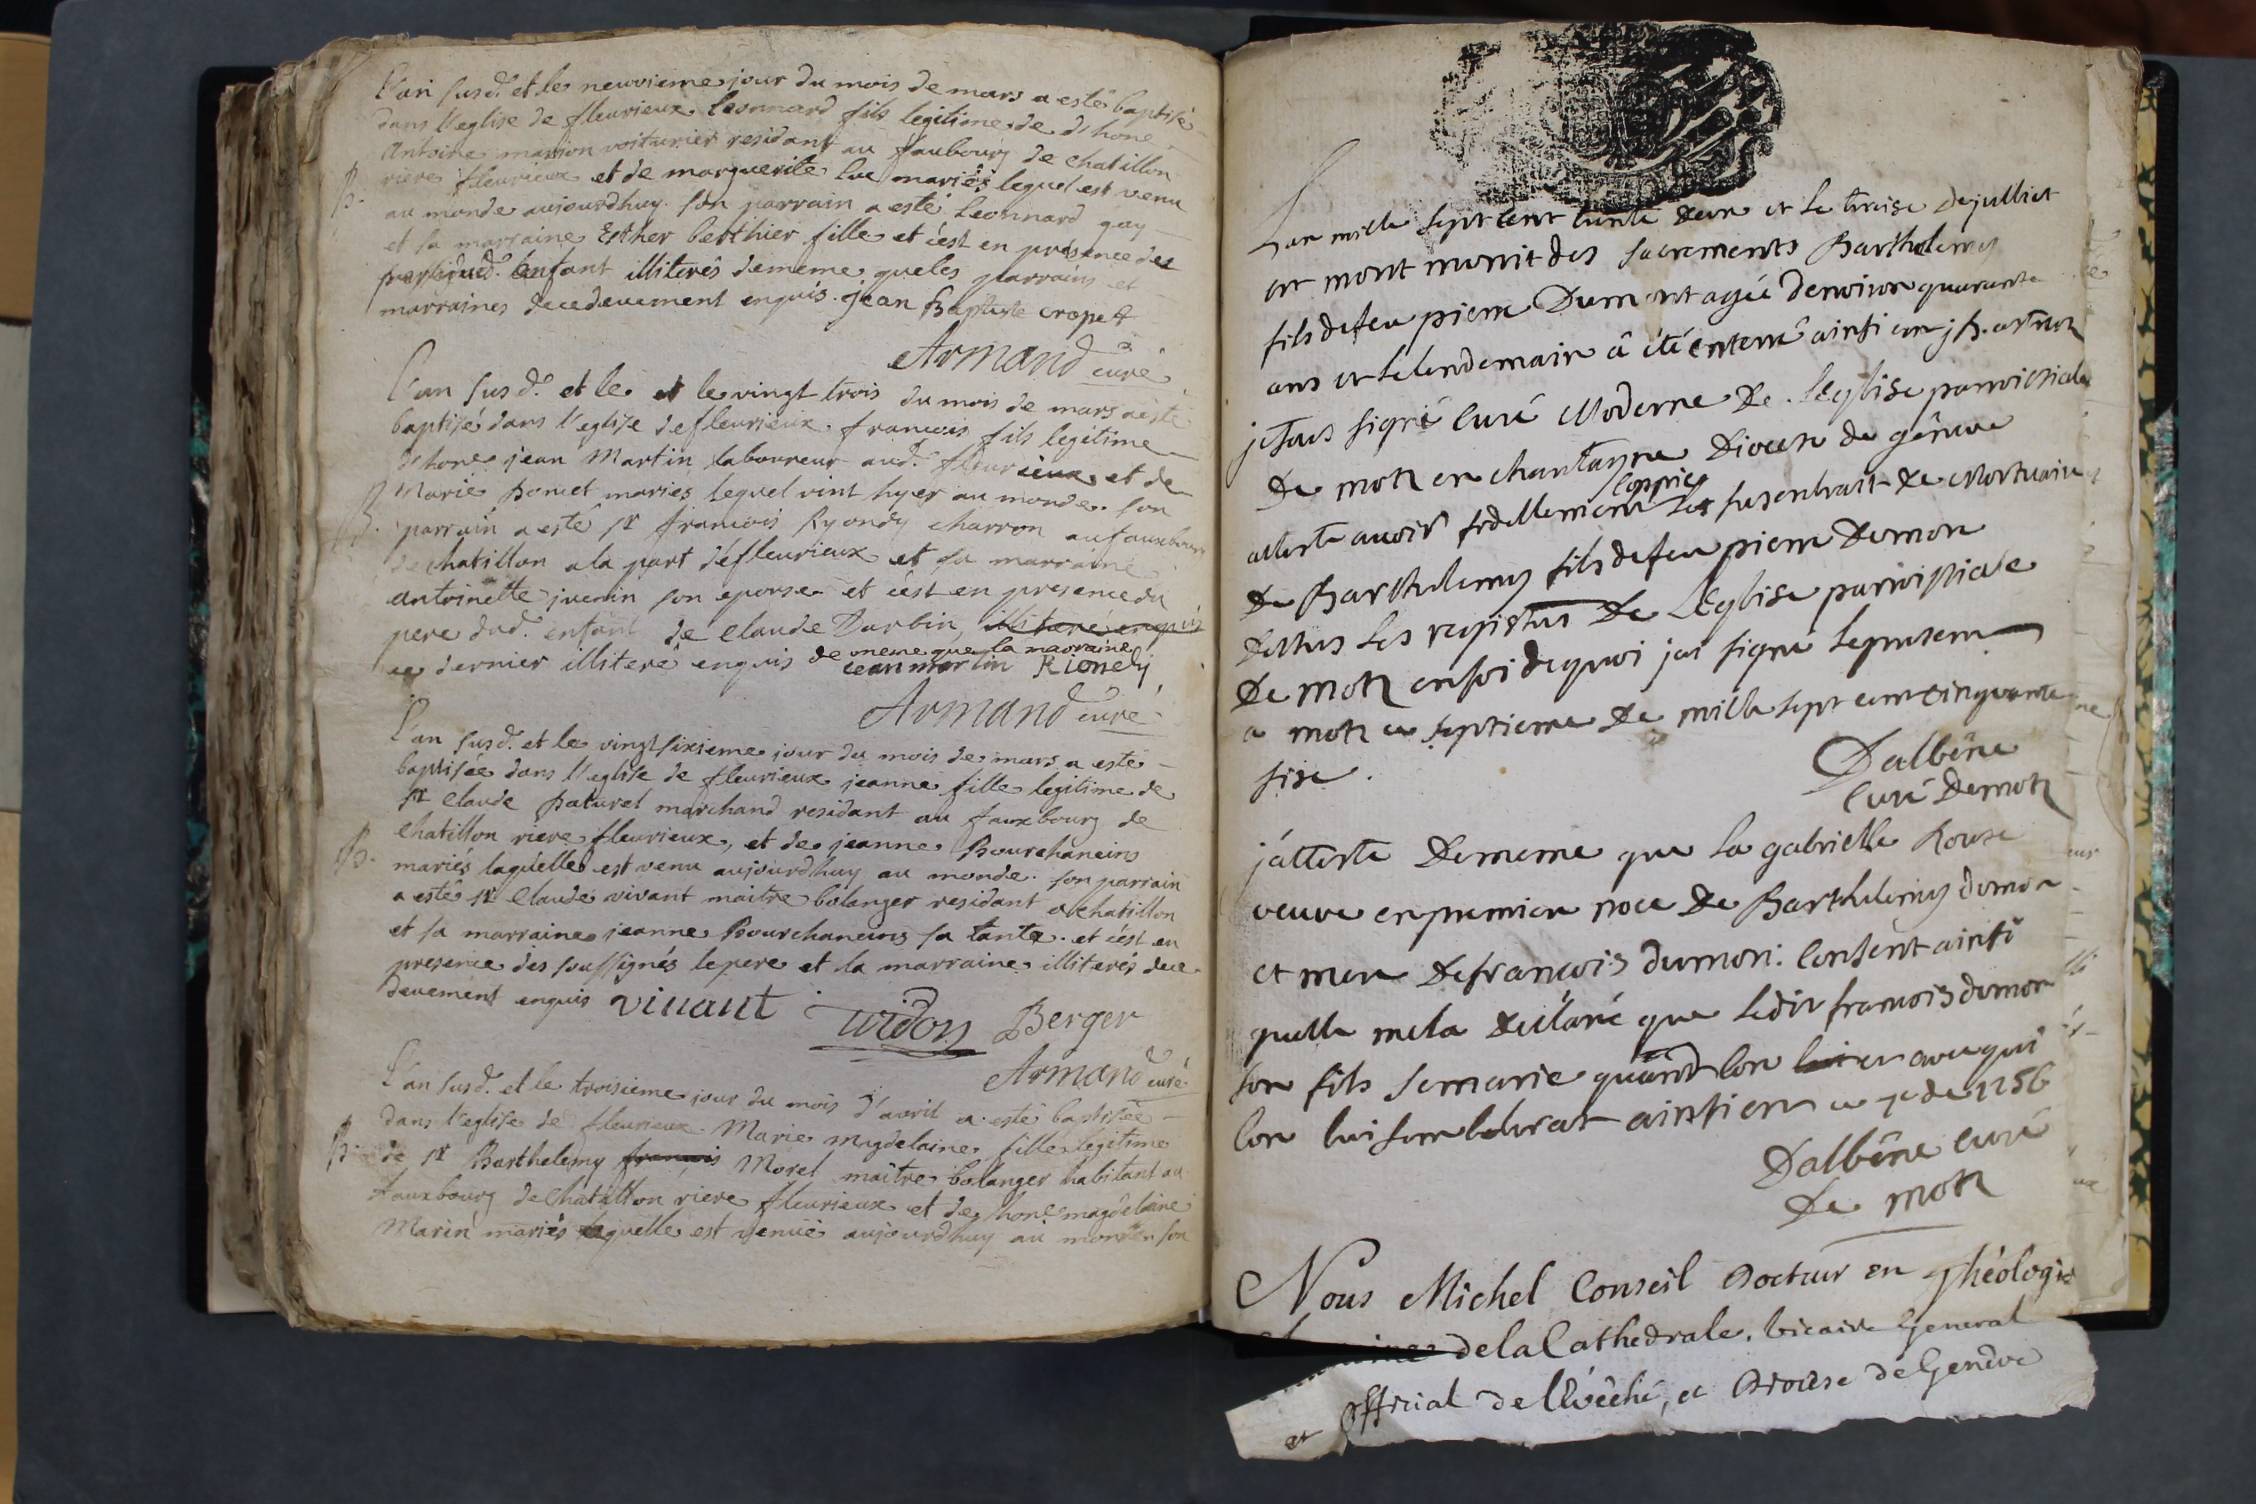 L'an susd. et le neuvieme jour du mois de mars a esté baptisé
dans l'eglise de fleurieux leonnard fils legitime de d'hone
Antoine marion voiturier residant au faubourg de chatillon
riere fleurieux et de marguerite luc mariés lequel est venu
B.
au monde aujourdhuy. son parrain a esté Leonnard gay
et sa marraine Esther berthier fille et c'est en présence des
dud. enfant illiterés dememe queles parrains et
marraines decedeuement enquis. jean Baptiste cropet
Armand curé
L'an susd. et le et le vingt trois du mois de mars a esté
baptisé dans l'eglise de fleurieux. francois fils legitime
d'hone jean Martin laboureur aud. fleurieux et de
Marie poncet mariés lequel vint hyer au monde. son
B.
parrain a esté sr francois Ryondy charron au fauxbourg
de chatillon a la part de fleurieux et sa marraine
antoinette juenin son epouse et c'est en presence du
pere dud. enfant de claude Darbin, illiteré enquis
de meme que la marraine
ce dernier illiteré enquis jean martin Rionely
Armand curé
L'an susd. et le vingtsixieme jour du mois de mars a esté
baptisée dans l'eglise de fleurieux jeanne fille legitime de
sr claude paturel marchand residant au fauxbourg de
chatillon riere fleurieux, et de jeanne Bourchaneins
B.
mariés laquelle est venu aujourdhuy au monde. son parrain
a esté sr claude vivant maitre bolanger residant a chatillon
et sa marraine jeanne Bourchaneins sa tante. et c'est en
presence des soussignés le pere et la marraine illiterés dece
deuement enquis vivant
Berger
Armand curé
L'an susd. et le troisieme jour du mois d'avril a esté baptisée
dans l'eglise de fleurieux. Marie magdelaine fille legitime
B.
de sr Barthelemy francois Morel maitre bolanger habitant au
fauxbourg de chatillon riere fleurieux et de hone magdelaine
Marin mariés laquelle est venuë aujourdhuy au monde son
L'an mille sept cent trente deux et le treise de julliet
est mort munit des sacrements Barthelemy
fils de feu pierre Dumont agée denviron quarante
ans et le lendemain a été enterré ainsi
je sous signé curé Moderne De Leglise parroissiale
De motz en chautagne Diocese de géneve
atteste avoir fidellement coppiez les susentrait De Mortuaire
De Barthelemy fils de feu pierre Dumon
dessus les registres De L'Eglise parroissiale
De motz en foi de quoi jai signé le present
a motz ce septieme De mille sept cent cinquante
sise.
D'albêne
curé De motz
j'atteste Dememe que la gabrielle Rouse
veuve en premiere noce De Barthelemy dumon
et mere De francois dumon: consent ainsi
quelle mela déclaré que ledit francois dumon
son fils se marie quand lon avec qui
lon lui semblerat ainsi ce 7e de 1756
D'albêne curé
De motz
Nous Michel Conseil Docteur en Théologie
de la Cathedrale, Vicaire General
et official de l'évêché, et Diocèse de Genève